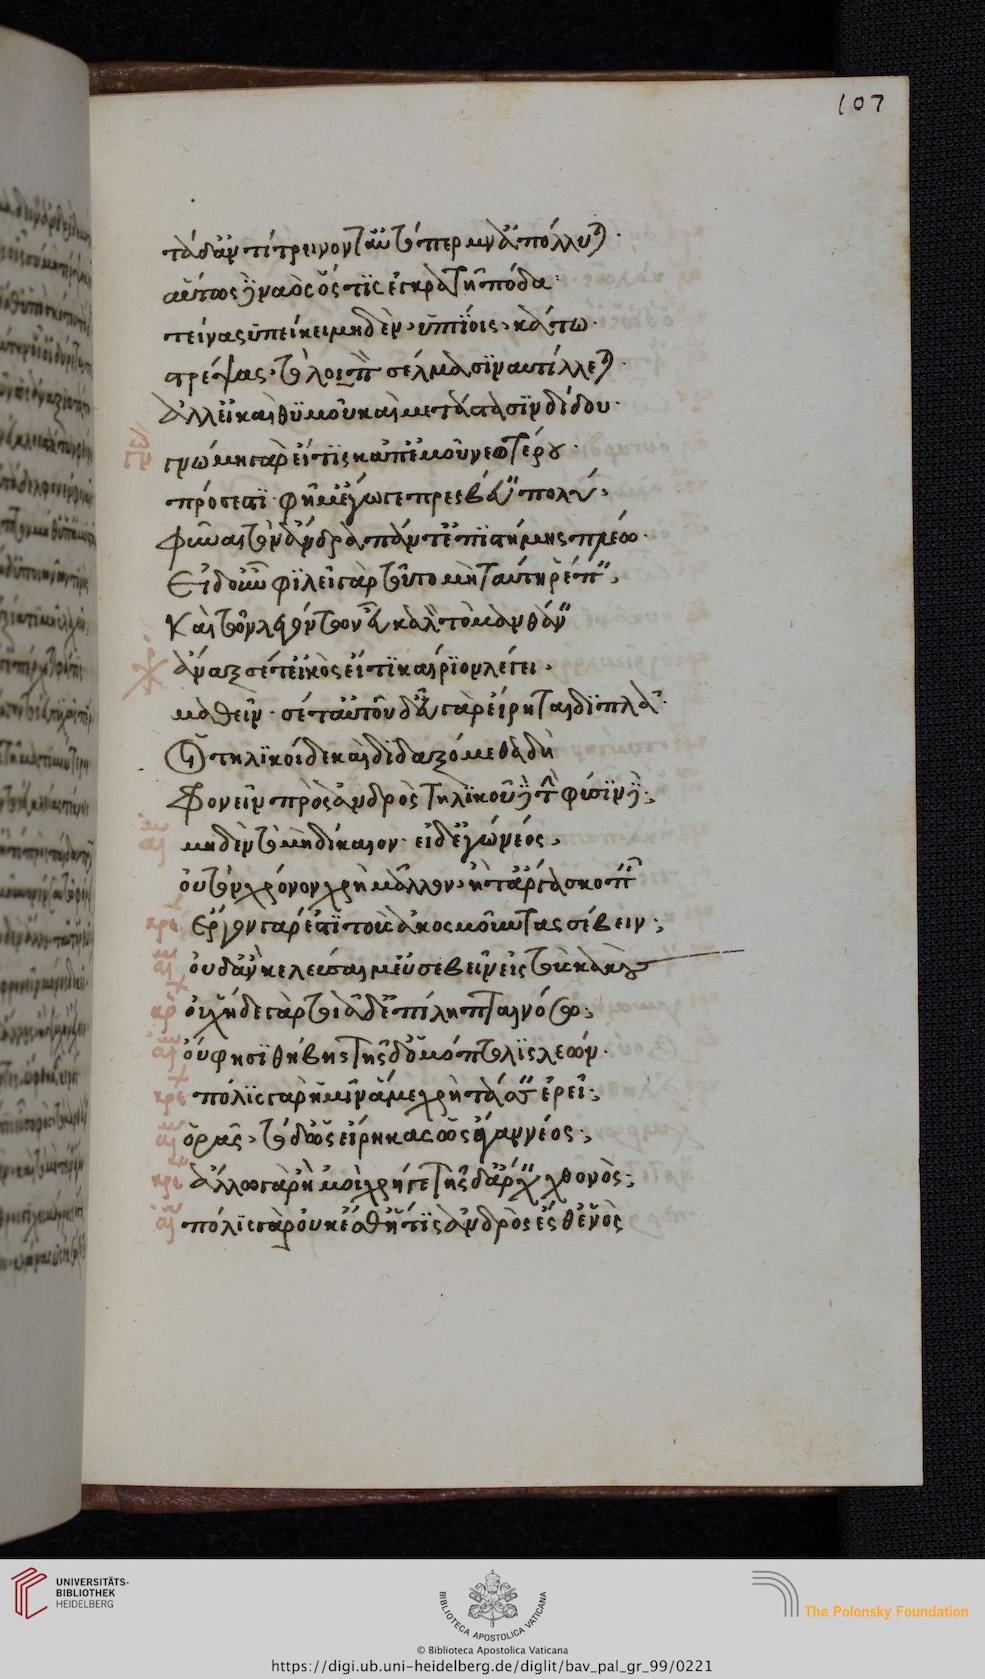 107
τὰ δ' ἀντιτείνοντ' αὐτόπρεμνα ἀπόλλυται·
αὔτως δὲ ναὸς ὅς τις ἐγκρατῆ πόδα·
τείνας ὑπείκει μηδὲν, ὑπτίοις, κάτω·
στρέψας· τὸ λοιπὸν σέλμασιν ναυτίλλεται·
ἀλλ' εἶκε καὶ θυμοῦ καὶ μετάστασιν δίδου·
γνώμη γὰρ εἴ τις κἀπ' ἐμοῦ νεωτέρου·
πρόσεστι· φήμ' ἔγωγε πρεσβεύειν πολύ,
φῦναι τὸν ἄνδρα πάντ' ἐπιστήμης πλέων·
Εἰ δ' οὖν φιλεῖ γὰρ τοῦτο μὴ ταύτῃ ῥέπειν,
Καὶ τῶν λεγόντων εὖ καλὸν τὸ μανθάνειν
ἄναξ σέ τ' εἰκὸς εἴ τι καίριον λέγει,
μαθεῖν· σέ τ' αὐτοῦδ' εὖ γὰρ εἴρηται διπλᾶ·
Οἱ τηλικοίδε καὶ διδαξόμεθα δὴ
Φρονεῖν πρὸς ἀνδρὸς τηλικοῦδε τὴν φύσιν;
αἵμ μηδὲν τὸ μὴ δίκαιον· εἰ δ' ἐγὼ νέος,
οὐ τὸν χρόνον χρὴ μᾶλλον, ἢ τἄργα σκοπεῖν
κρε Ἔργον γάρ ἐστι τοὺς ἀκοσμοῦντας σέβειν;
αἵμ οὐδ' ἂν κελεύσαιμ' εὐσεβεῖν εἰς τοὺς κακούς
κρ οὐχ ἥδε γὰρ τοιᾷδ' ἐπείληπται νόσῳ;
αἵμ οὔ φησι θήβης τῆσδ' ὁμόπτολις λεών·
κρε πόλις γὰρ ἡμῖν ἁμὲ χρὴ τάσσειν ἐρεῖ;
αἵμ ὁρᾷς, τόδ' ὡς εἴρηκας ὡς ἄγαν νέος;
κρε ἄλλῳ γὰρ ἢ μοὶ χρή γε τῆσδ' ἄρχειν χθονὸς;
αἵμ πόλις γὰρ οὐκ ἔσθ' ἥτις ἀνδρός ἐσθ' ἑνός
UNIVERSITÄTS-
BIBLIOTHEK
HEIDELBERG
BIBLIOTECA APOSTOLICA VATICANA
The Polonsky Foundation
© Biblioteca Apostolica Vaticana
https://digi.ub.uni-heidelberg.de/diglit/bav_pal_gr_99/0221